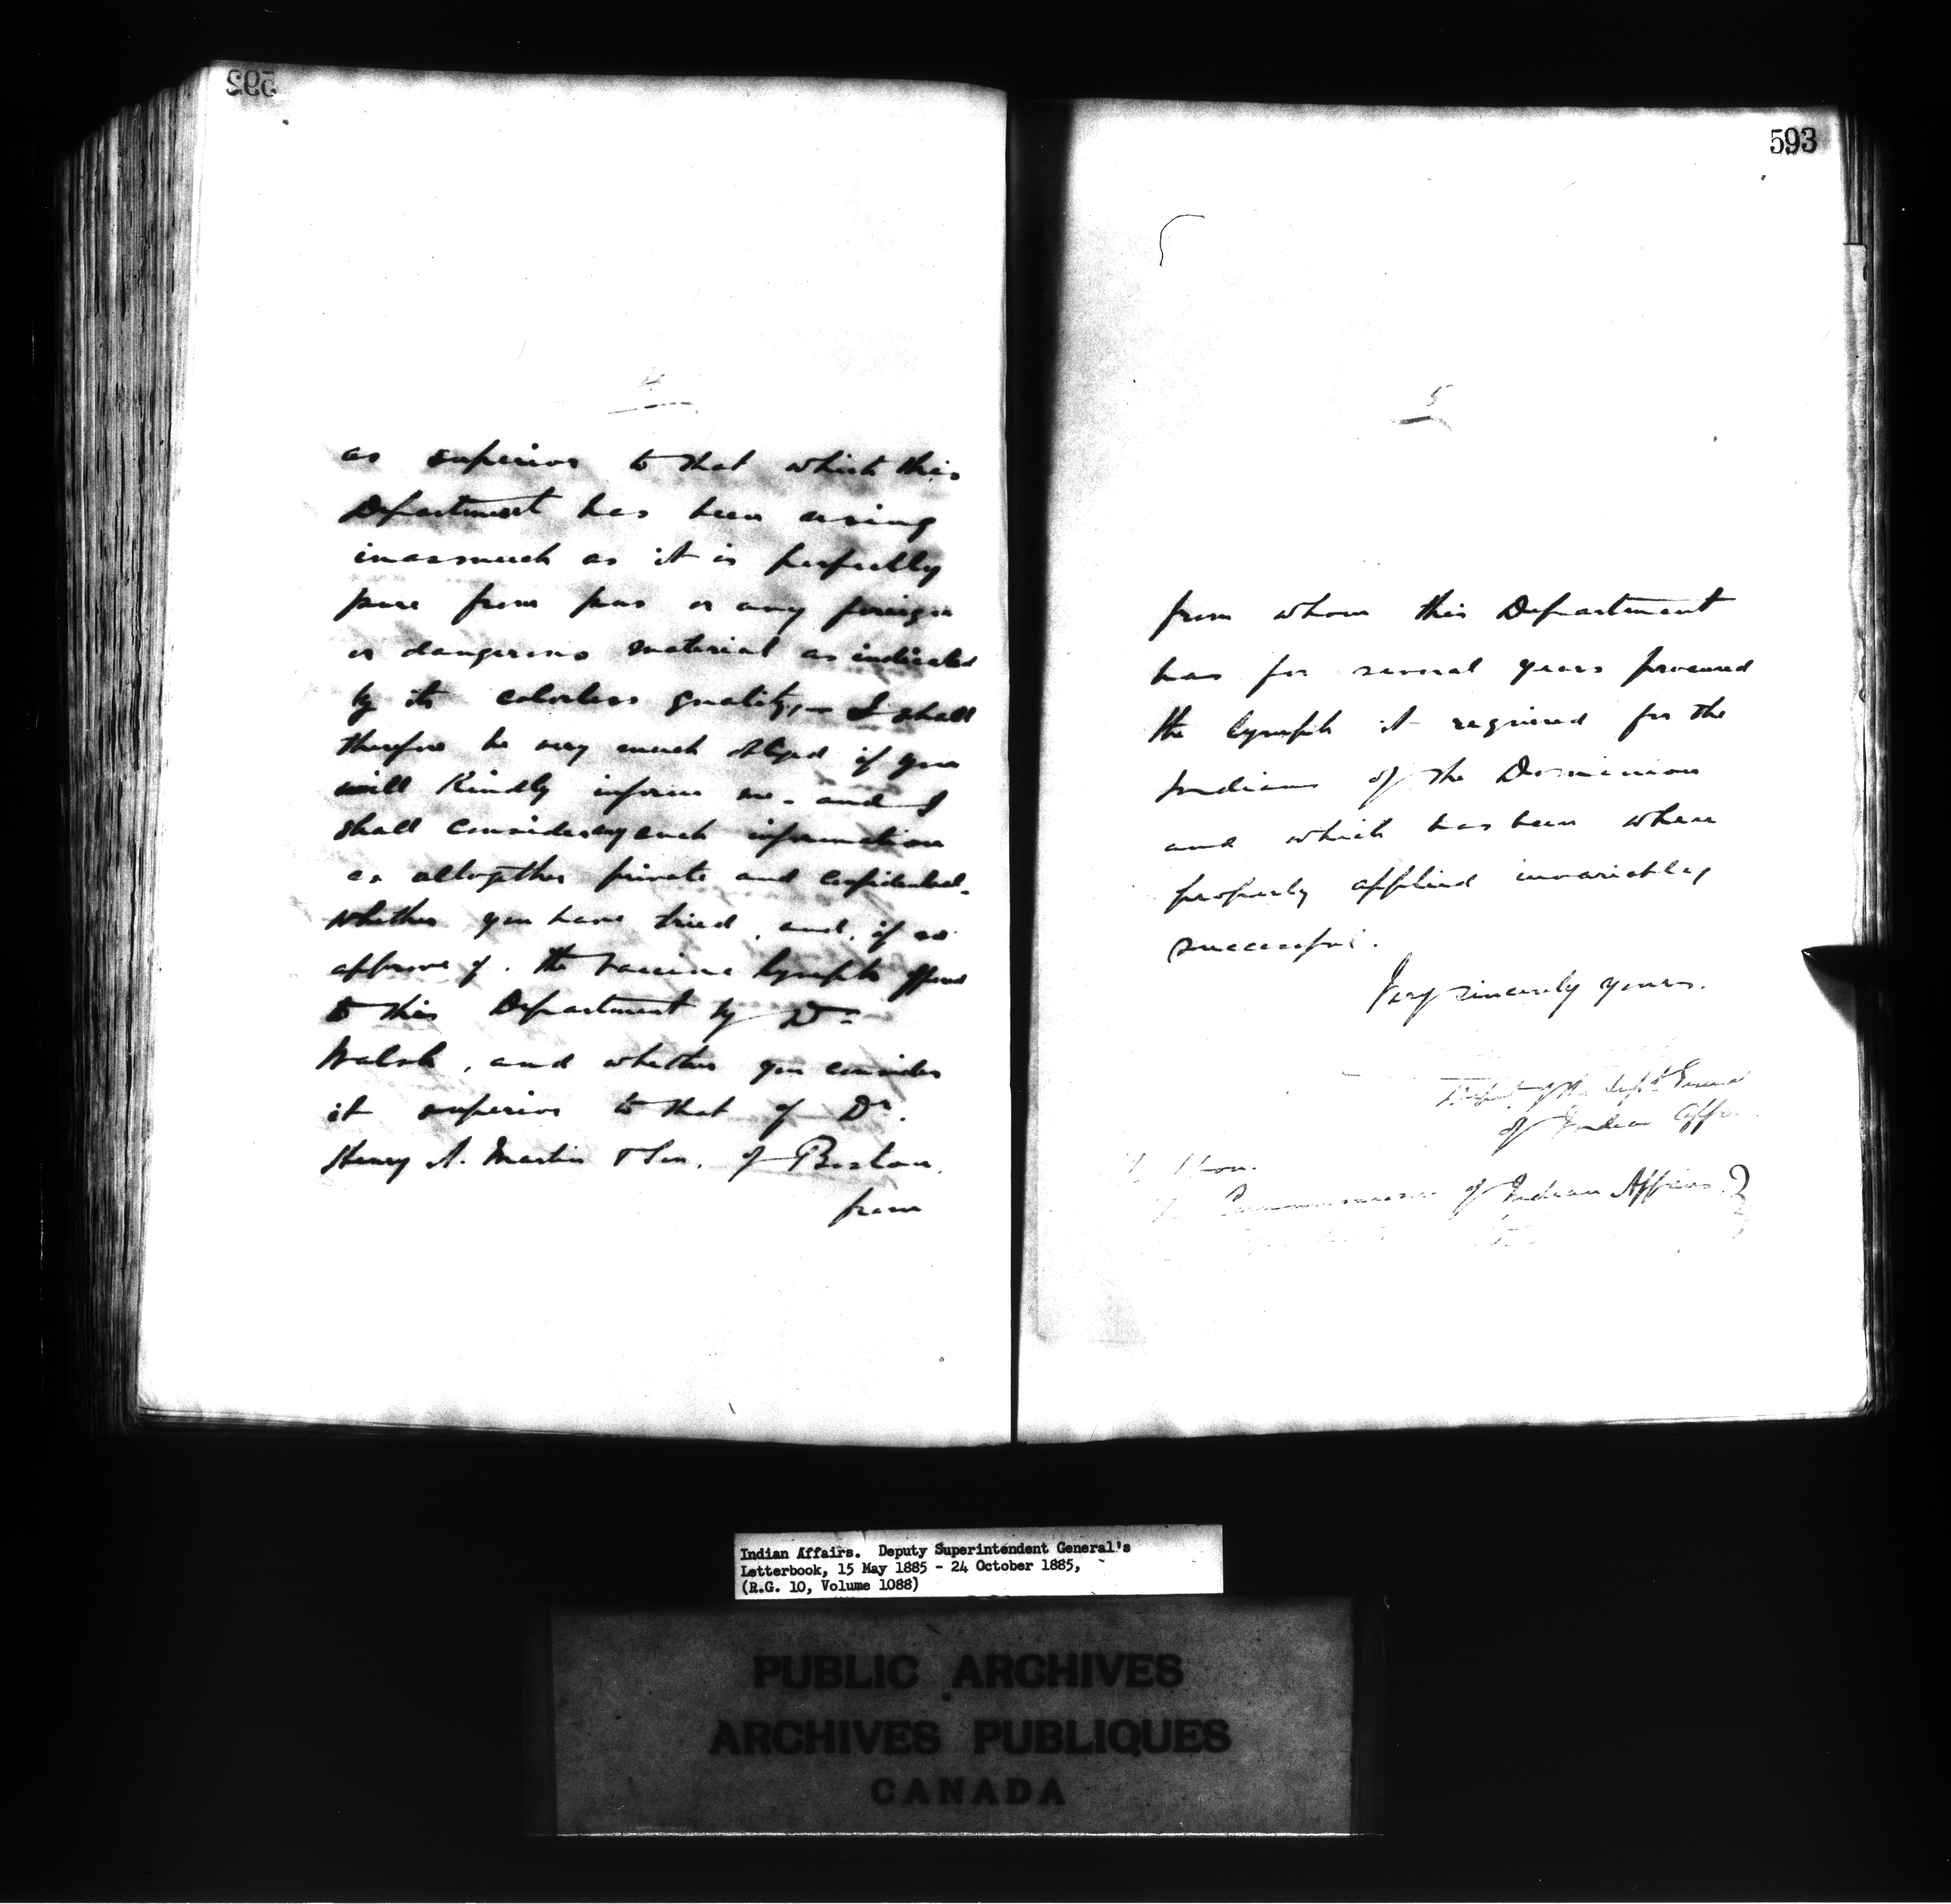 592
4
as superior to that which this
Department has been using
inasmuch as it is perfectly
pure from pus or any foreign
or dangerous material as indicated
by its colorless quality,— I shall
therefore be very much obliged if you
will kindly inform me - and I
shall consider any such information
as altogether private and confidential -
whether you have tried, and, if so
approve of, the vaccine lymph offered
to this Department by Dr
Walsh, and whether you consider
it superior to that of Dr.
Henry A. Martin & Son, of Boston,
from
593
5
from whom this Department
has for several years procured
the lymph it required for the
Indians of the Dominion
and which has been where
properly applied invariably
successful.
Very sincerely yours.
of the Supt General
of Indian Affrs
Hon.
Commissioner of Indian Affairs.
Indian Affairs. Deputy Superintendent General's
Letterbook, 15 May 1885 - 24 October 1885,
(R.G. 10, Volume 1088)
PUBLIC ARCHIVES
ARCHIVES PUBLIQUES
CANADA